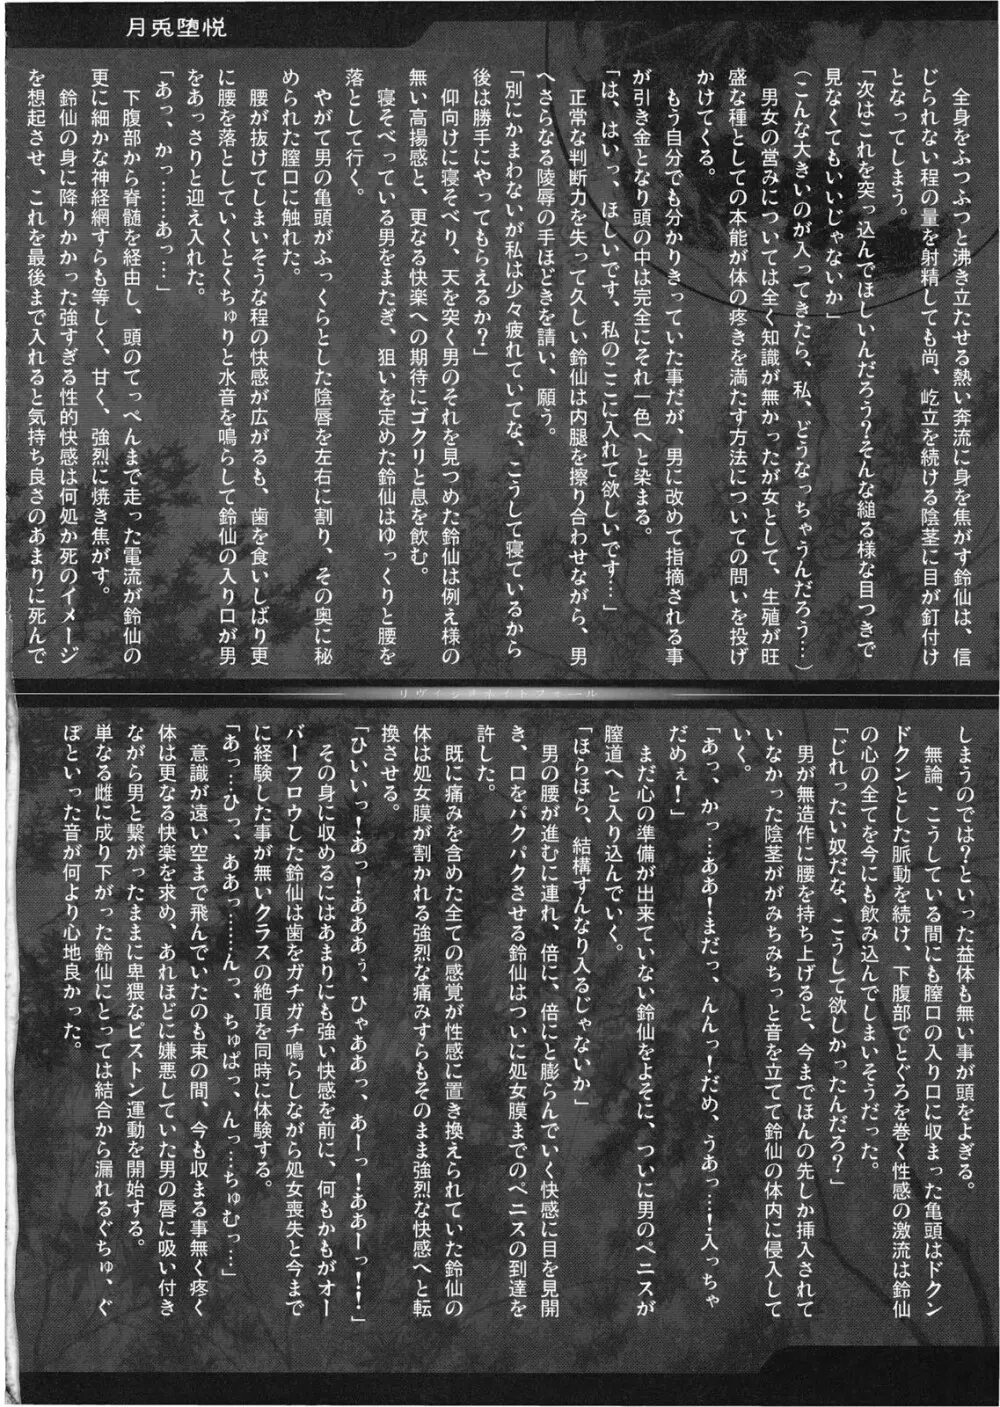 月兎堕悦
全身をふつふつと沸き立たせる熱い奔流に身を焦がす鈴仙は、信
じられない程の量を射精しても尚、屹立を続ける陰茎に目が釘付け
となってしまう。
「次はこれを突っ込んでほしいんだろう？そんな縋る様な目つきで
見なくてもいいじゃないか」
（こんな大きいのが入ってきたら、私、どうなっちゃうんだろう…）
男女の営みについては全く知識が無かったが女として、生殖が旺
盛な種としての本能が体の疼きを満たす方法についての問いを投げ
かけてくる。
もう自分でも分かりきっていた事だが、男に改めて指摘される事
が引き金となり頭の中は完全にそれ一色へと染まる。
「は、はいっ、ほしいです、私のここに入れて欲しいです…」
正常な判断力を失って久しい鈴仙は内腿を擦り合わせながら、男
へさらなる陵辱の手ほどきを請い、願う。
「別にかまわないが私は少々疲れていてな、こうして寝ているから
後は勝手にやってもらえるか？」
仰向けに寝そべり、天を突く男のそれを見つめた鈴仙は例え様の
無い高揚感と、更なる快楽への期待にゴクリと息を飲む。
寝そべっている男をまたぎ、狙いを定めた鈴仙はゆっくりと腰を
落として行く。
やがて男の亀頭がふっくらとした陰唇を左右に割り、その奥に秘
められた膣口に触れた。
腰が抜けてしまいそうな程の快感が広がるも、歯を食いしばり更
に腰を落としていくとくちゅりと水音を鳴らして鈴仙の入り口が男
をあっさりと迎え入れた。
「あっ、かっ………あっ…」
下腹部から脊髄を経由し、頭のてっぺんまで走った電流が鈴仙の
更に細かな神経網すらも等しく、甘く、強烈に焼き焦がす。
鈴仙の身に降りかかった強すぎる性的快感は何処か死のイメージ
を想起させ、これを最後まで入れると気持ち良さのあまりに死んで
リヴィジョナリトフォール
しまうのでは？といった益体も無い事が頭をよぎる。
無論、こうしている間にも膣口の入り口に収まった亀頭はドクン
ドクンとした脈動を続け、下腹部でとぐろを巻く性感の激流は鈴仙
の心の全てを今にも飲み込んでしまいそうだった。
「じれったい奴だな、こうして欲しかったんだろ？」
男が無造作に腰を持ち上げると、今までほんの先しか挿入されて
いなかった陰茎ががみちみちっと音を立てて鈴仙の体内に侵入して
いく。
「あっ、かっ…ああ！まだっ、んんっ！だめ、うあっ…！入っちゃ
だめぇ！」
まだ心の準備が出来ていない鈴仙をよそに、ついに男のペニスが
膣道へと入り込んでいく。
「ほらほら、結構すんなり入るじゃないか」
男の腰が進むに連れ、倍に、倍にと膨らんでいく快感に目を見開
き、口をパクパクさせる鈴仙はついに処女膜までのペニスの到達を
許した。
既に痛みを含めた全ての感覚が性感に置き換えられていた鈴仙の
体は処女膜が割かれる強烈な痛みすらもそのまま強烈な快感へと転
換させる。
「ひいいっ！あっ！あああぅ、ひゃああっ、あーっ！ああーっ！！」
その身に収めるにはあまりにも強い快感を前に、何もかもがオー
バーフロウした鈴仙は歯をガチガチ鳴らしながら処女喪失と今まで
に経験した事が無いクラスの絶頂を同時に体験する。
「あっ…ひっ、ああっ……んっ、ちゅぱっ、んっ…ちゅむっ…」
意識が遠い空まで飛んでいたのも束の間、今も収まる事無く疼く
体は更なる快楽を求め、あれほどに嫌悪していた男の唇に吸い付き
ながら男と繋がったままに卑猥なピストン運動を開始する。
単なる雌に成り下がった鈴仙にとっては結合から漏れるぐちゅ、ぐ
ぽといった音が何より心地良かった。